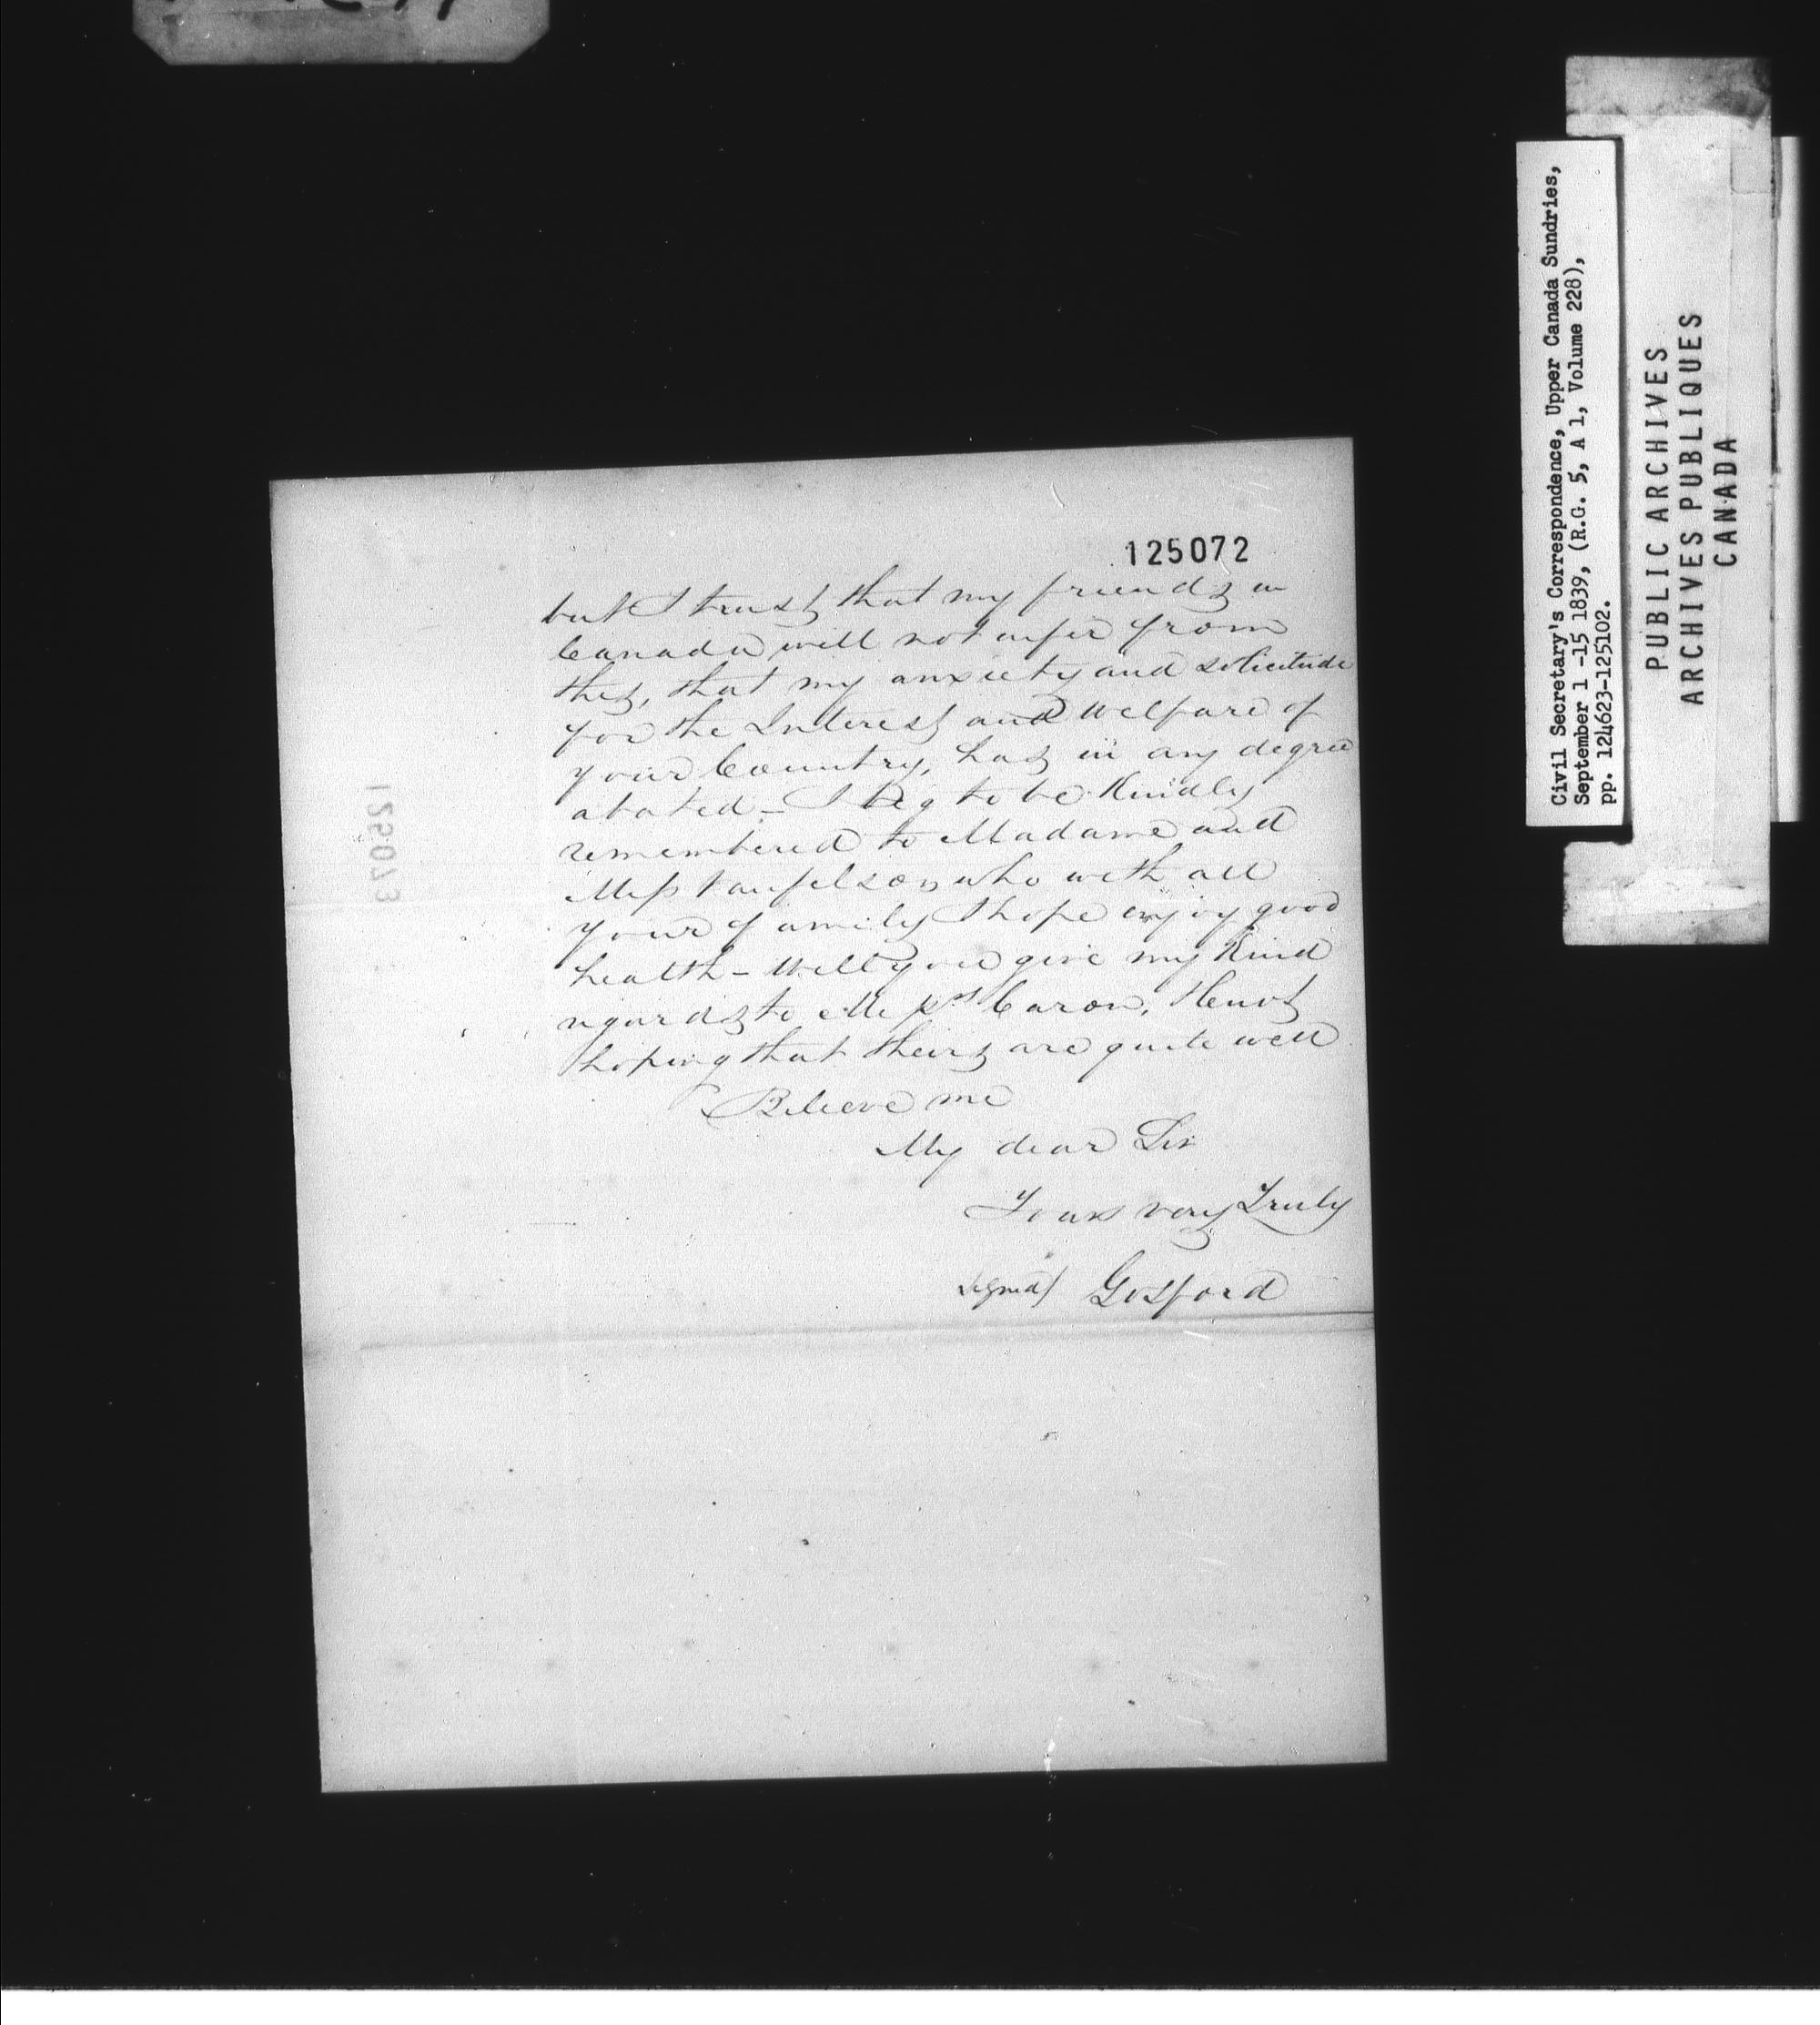 125072
but I trust that my friends in
Canada will not infer from
this, that my anxiety and solicitude
for the Interest and Welfare of
your Country, has in any degree
abated - I beg to be Kindly
remembered to Madame and
Miss Vanfelson who with all
your family I hope enjoy good
health - Will you give my Kind
regards to Messrs Caron, Huot
hoping that theirs are quite well
Believe me
My dear Sir
Yours very Truly
signed/ Gosford
125073
Civil Secretary's Correspondence, Upper Canada Sundries,
September 1 -15 1839, (R.G. 5, A 1, Volume 228),
pp. 124623-125102.
PUBLIC ARCHIVES
ARCHIVES PUBLIQUES
CANADA